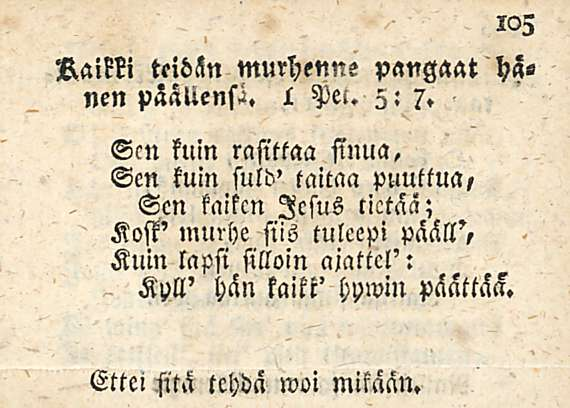 105
Kaikki teidän murhenne pangaat hä⸗
nen päällensä. 1 Pet. 5: 7.
Sen kuin rasittaa sinua,
Sen kuin suld' taitaa puuttua,
Sen kaiken Jesus tietää;
Kosk' murhe siis tuleepi pääll',
Kuin lapsi silloin ajattel':
Kyll' hän kaikk' hywin päättää.
Ettei sitä tehdä woi mikään.